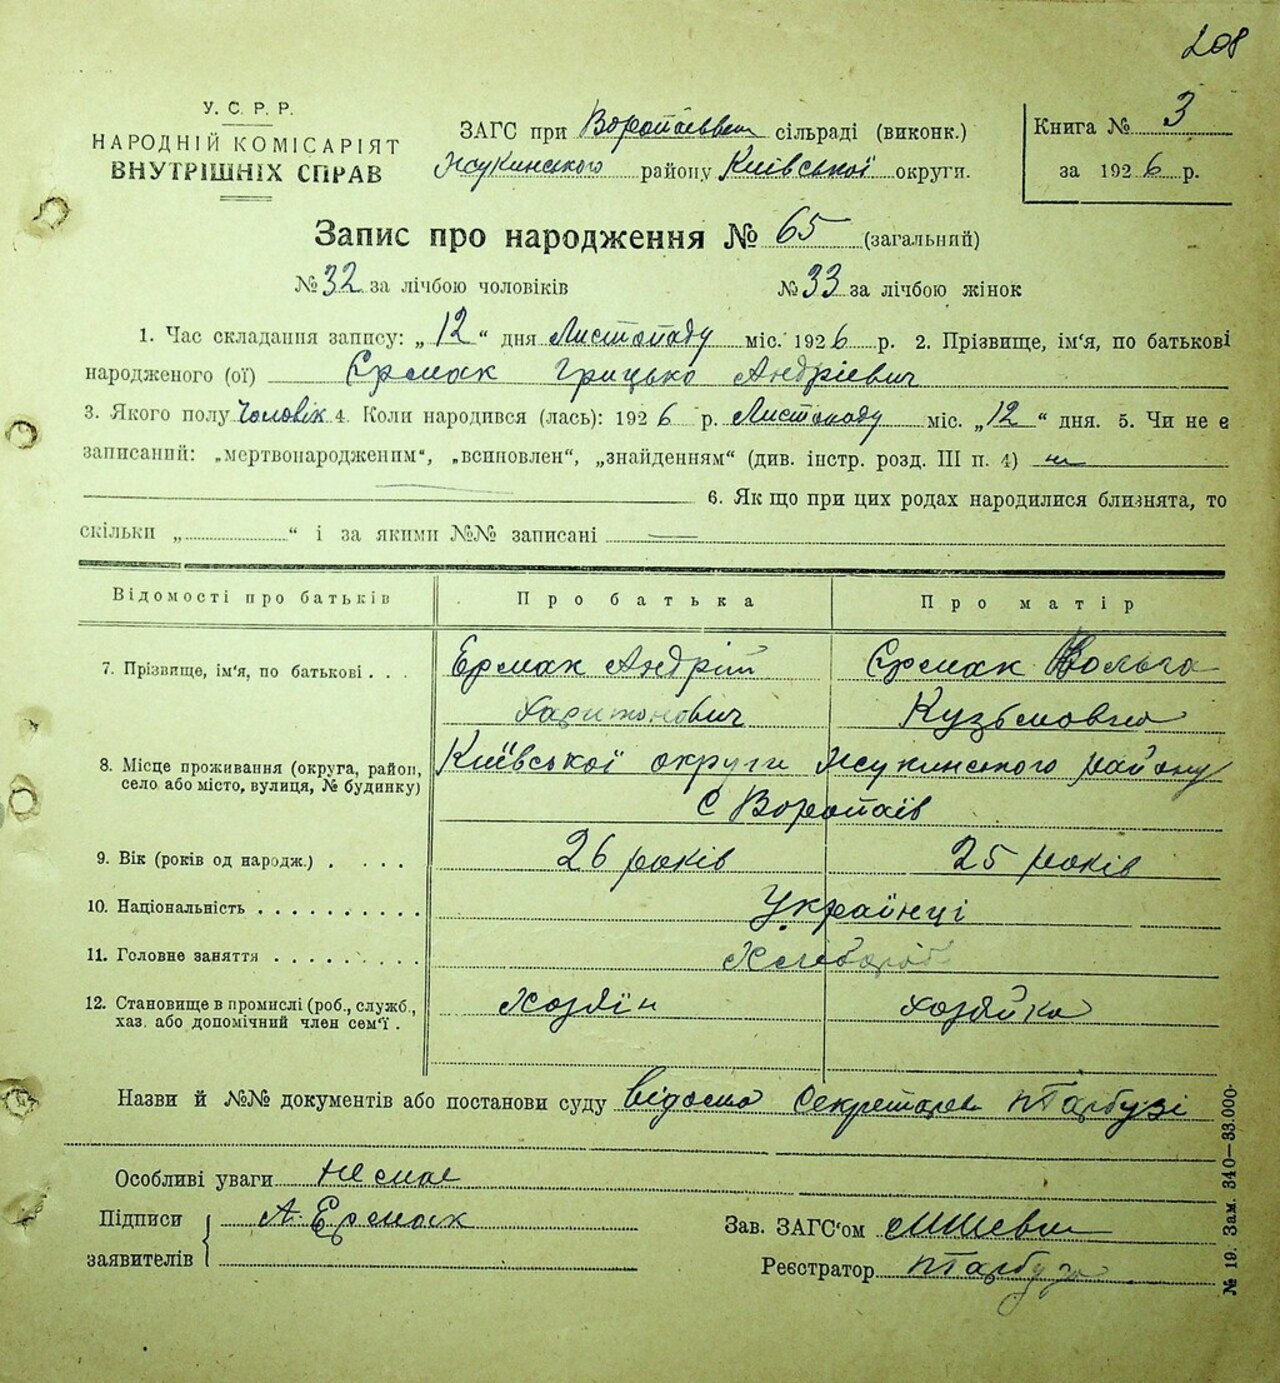 208
У. С. Р. Р.
НАРОДНІЙ КОМІСАРІЯТ
ВНУТРІШНІХ СПРАВ
ЗАГС при сільраді (виконк.)
району Київської округи.
Книга № 3
за 1926 р.
Запис про народження № 65 (загальний)
№ 32 за лічбою чоловіків № 33 за лічбою жінок
1. Час складання запису: „12“ дня Листопаду міс. 1926 р. 2. Прізвище, ім‘я, по батькові
народженого (ої) Єрмак Грицько Андрієвич
3. Якого полу Чоловік 4. Коли народився (лась): 1926 р. Листопаду міс. „12“ дня. 5. Чи не є
записаний: „мертвонародженим“, „всиновлен“, „знайденням“ (див. інстр. розд. III п. 4) ні
6. Як що при цих родах народилися близнята, то
скільки „ “ і за якими №№ записані
Відомості про батьків Про батька Про матір
7. Прізвище, ім‘я, по батькові . . . Єрмак Андрій Єрмак Вольга
Харитонович Кузьмовна
8. Місце проживання (округа, район, Київської округи району
село або місто, вулиця, № будинку) С Воропаїв
9. Вік (років од народж.) . . . . . 26 років 25 років
10. Національність . . . . . . . . . . Українці
11. Головне заняття . . . . . . . . . Хлібороб
12. Становище в промислі (роб., служб., Хозяїн Хозяйка
хаз. або допомічний член сем‘ї .
Назви й №№ документів або постанови суду відомо Секретарев
Особливі уваги Не має
Підписи А. Ермак
заявителів
Зав. ЗАГС‘ом
Реєстратор
№ 19. Зам. 340—33.000